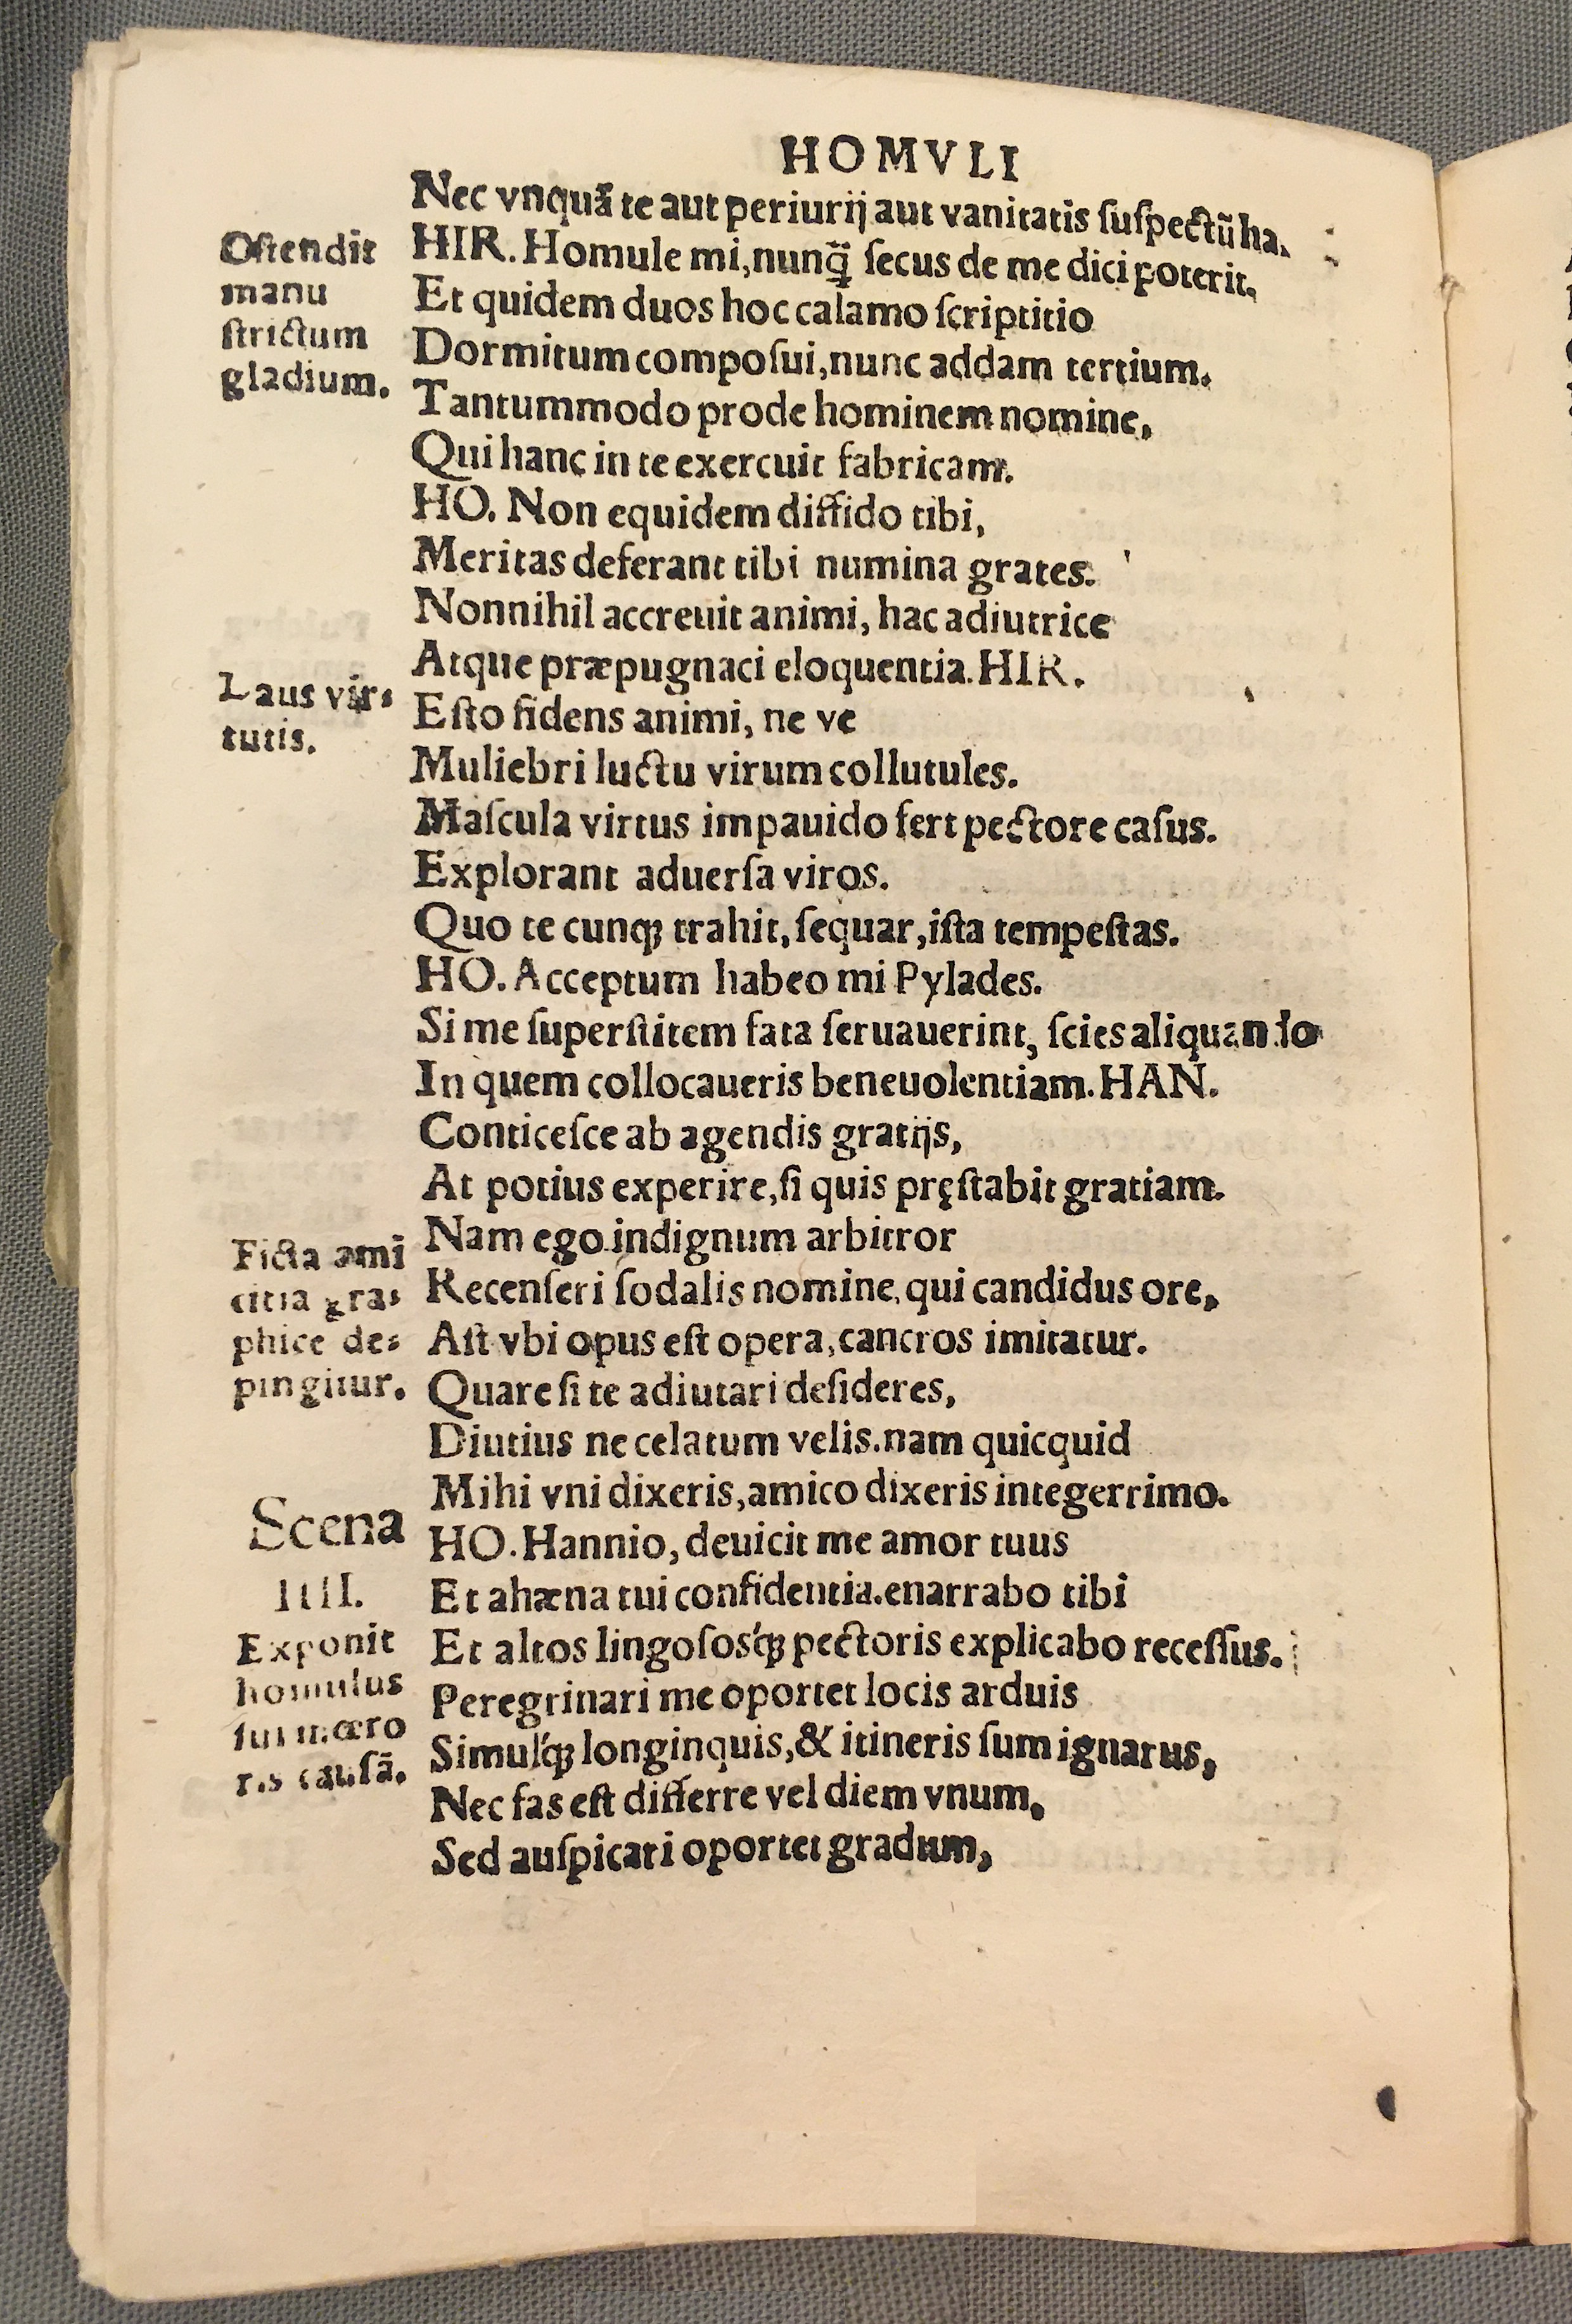 HOMVLI
Nec vnquã te aut periurij aut vanitatis ſuſpectũ ha.
Oſtendit
manu
ſtrictum
gladium.
HIR. Homule mi, nunq̃ ſecus de me dici poterit.
Et quidem duos hoc calamo ſcriptitio
Dormitum compoſui, nunc addam tertium.
Tantummodo prode hominem nomine,
Qui hanc in te exercuit fabricam.
HO. Non equidem diffido tibi,
Meritas deferant tibi numina grates.
Nonnihil accreuit animi, hac adiutrice
Atque præpugnaci eloquentia. HIR.
Laus vir⸗
tutis.
Eſto fidens animi, ne ve
Muliebri luctu virum collutules.
Maſcula virtus impauido fert pectore caſus.
Explorant aduerſa viros.
Quo te cunqꝫ trahit, ſequar, iſta tempeſtas.
HO. Acceptum habeo mi Pylades.
Si me ſuperſtitem fata ſeruauerint, ſcies aliquando
In quem collocaueris beneuolentiam. HAN.
Conticeſce ab agendis gratijs,
At potius experire, ſi quis pręſtabit gratiam.
Nam ego indignum arbitror
Ficta ami
citia gra⸗
phice de⸗
pingitur.
Recenſeri ſodalis nomine, qui candidus ore,
Aſt vbi opus eſt opera, cancros imitatur.
Quare ſi te adiutari deſideres,
Diutius ne celatum velis. nam quicquid
Mihi vni dixeris, amico dixeris integerrimo.
Scena
IIII.
HO. Hannio, deuicit me amor tuus
Et ahæna tui confidentia. enarrabo tibi
Exponit
homulus
ſui mœro
ris cauſã.
Et altos lingoſos'qꝫ pectoris explicabo receſſus.
Peregrinari me oportet locis arduis
Simul'qꝫ longinquis, & itineris ſum ignarus,
Nec fas eſt differre vel diem vnum,
Sed auſpicari oportet gradum,